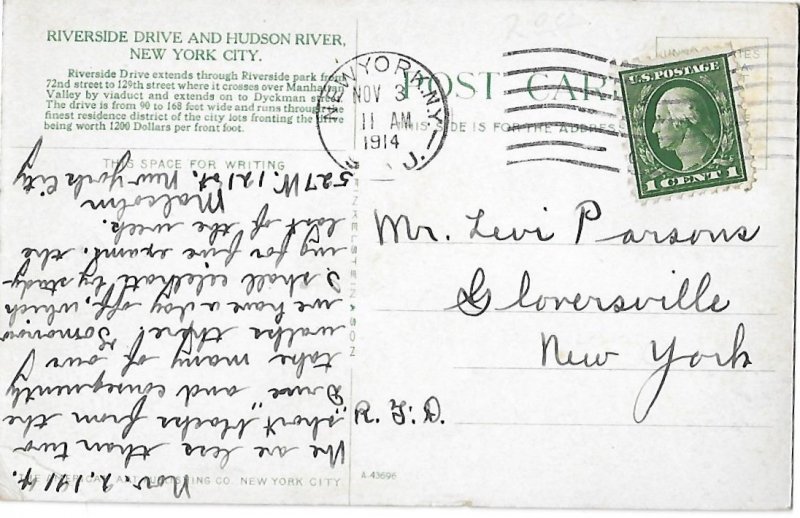 RIVERSIDE DRIVE AND HUDSON RIVER,
NEW YORK CITY.
Riverside Drive extends through Riverside park from
72nd street to 129th street where it crosses over Manhattan
Valley by viaduct and extends on to Dyckman street
The drive is from 90 to 168 feet wide and runs through the
finest residence district of the city lots fronting the drive
being worth 1200 Dollars per front foot.
POST CARD
THIS SIDE IS FOR THE ADDRESS
NEW YORK, N.Y.
NOV 3
11 AM
1914
J.
U.S. POSTAGE
1 CENT 1
THIS SPACE FOR WRITING
Nov. 2. 1914.
We are less than two
"short" blocks from the
Drive and consequently
take many of our
walks there! Tomorrow
we have a day off, which
I shall celebrate by study-
ing for five exams. the
last of the week.
Malcolm
527 W. 121 st. New York City
Mr. Levi Parsons
Gloversville
New York
R. F. D.
THE AMERICAN ART PUBLISHING CO. NEW YORK CITY
A-43696